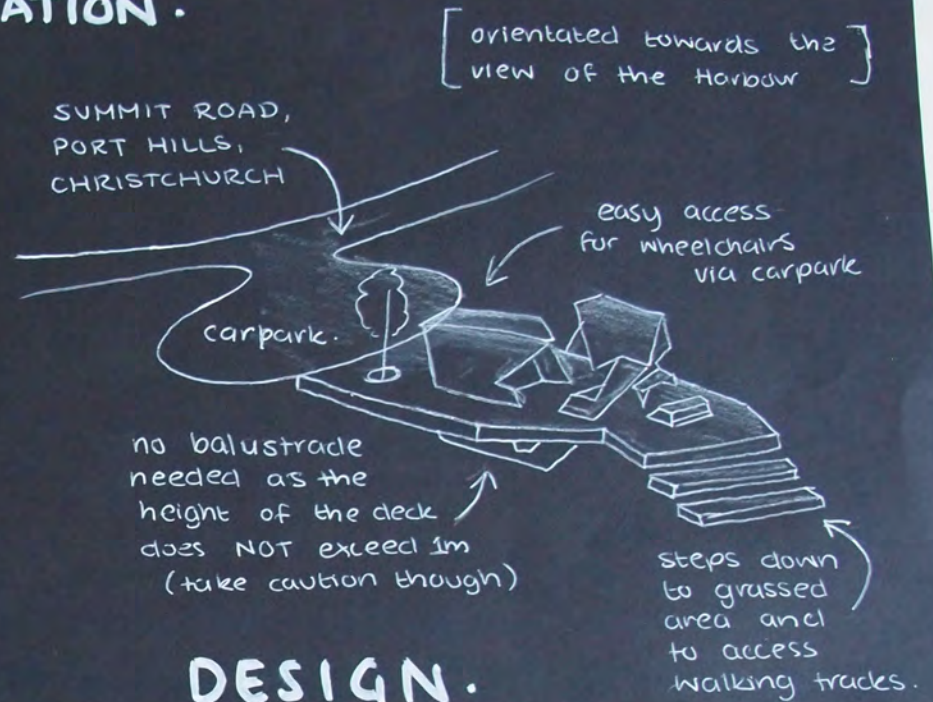 ATION.
[orientated towards the
view of the Harbour]
SUMMIT ROAD,
PORT HILLS,
CHRISTCHURCH
easy access
for wheelchairs
via carpark
carpark.
no balustrade
needed as the
height of the deck
does NOT exceed 1m
(take caution though)
steps down
to grassed
area and
to access
walking tracks.
DESIGN.